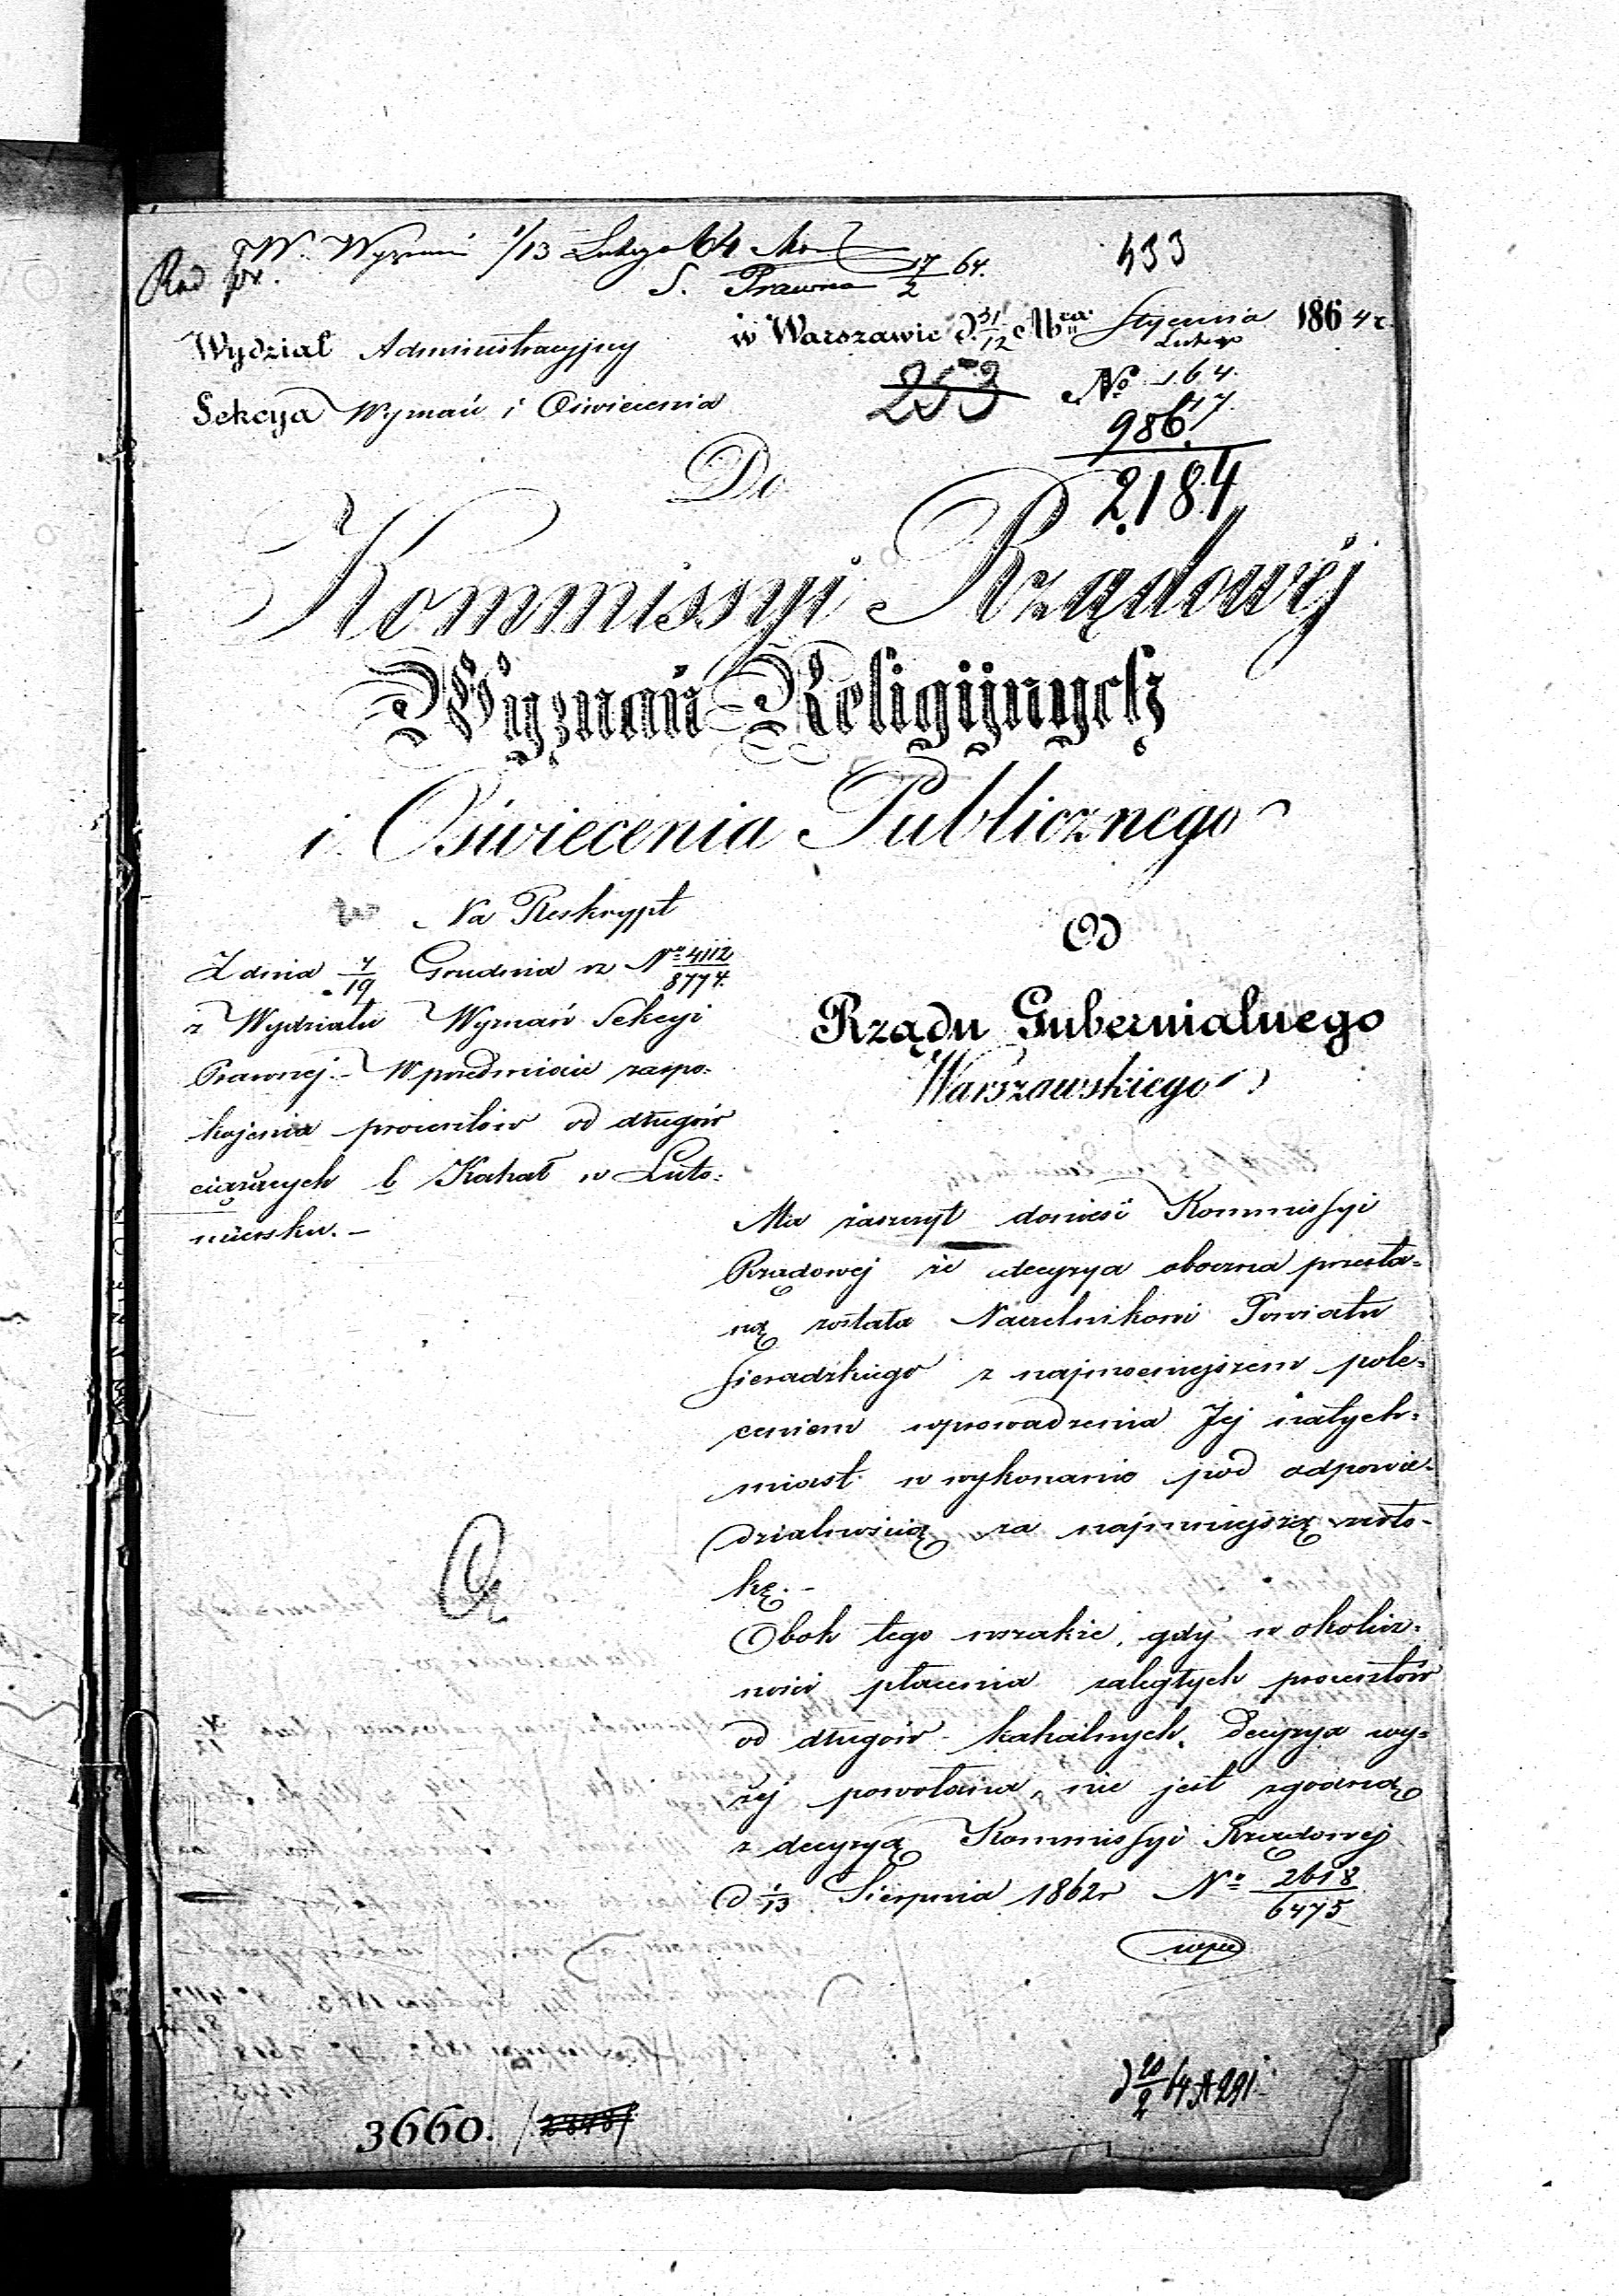 W. Wyznań 1/13 Lutego 64
433
S. Prawna 17/2 64.
Wydział Administracyjny
w Warszawie d. 31/12 Mca Stycznia/Lutego 1864 r.
253
№ 164.
Sekcya Wyznań i Oświecenia
986/17.
2184
Do
Kommissyi Rządowéj
Wyznań Religijnych
i Oświecenia Publicznego
Na Reskrypt
Z dnia 7/19 Grudnia rz № 4112/8774.
z Wydziału Wyznań Sekcyi
Prawnej.– W przedmiocie zaspo=
kojenia procentów od długów
ciążących b Kahał w Luto=
miersku.–
Od
Rządu Gubernialnego
Warszawskiego
Ma zaszczyt donieść Kommissyi
Rządowej że decyzya oboczna przesła=
ną została Naczelnikowi Powiatu
Sieradzkiego z najmocniejszem pole=
ceniem wprowadzenia Jej natych=
miast w wykonanie pod odpowie=
dzialnością za najmniejszą zwło=
kę.–
Obok tego wszakże, gdy w okolicz=
ności płacenia zaległych procentów
od długów kahalnych, decyzya wy=
żej powołana, nie jest zgodną
z decyzyą Kommissyi Rządowej
d 1/13 Sierpnia 1862 r № 2618/6475
3660.